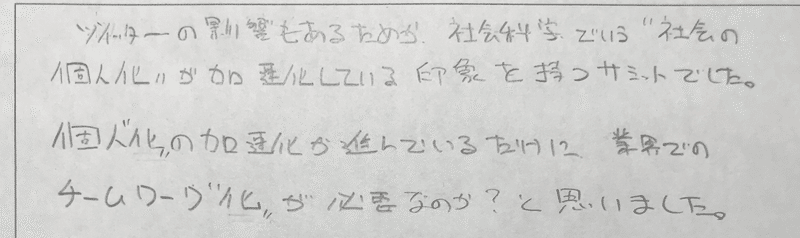 ツイッターの影響もあるためか、社会科学でいう"社会の
個人化"が加速化している印象を持つサミットでした。
個人"化"の加速化が進んでいるだけに、業界での
チームワーク"化"が必要なのか?と思いました。